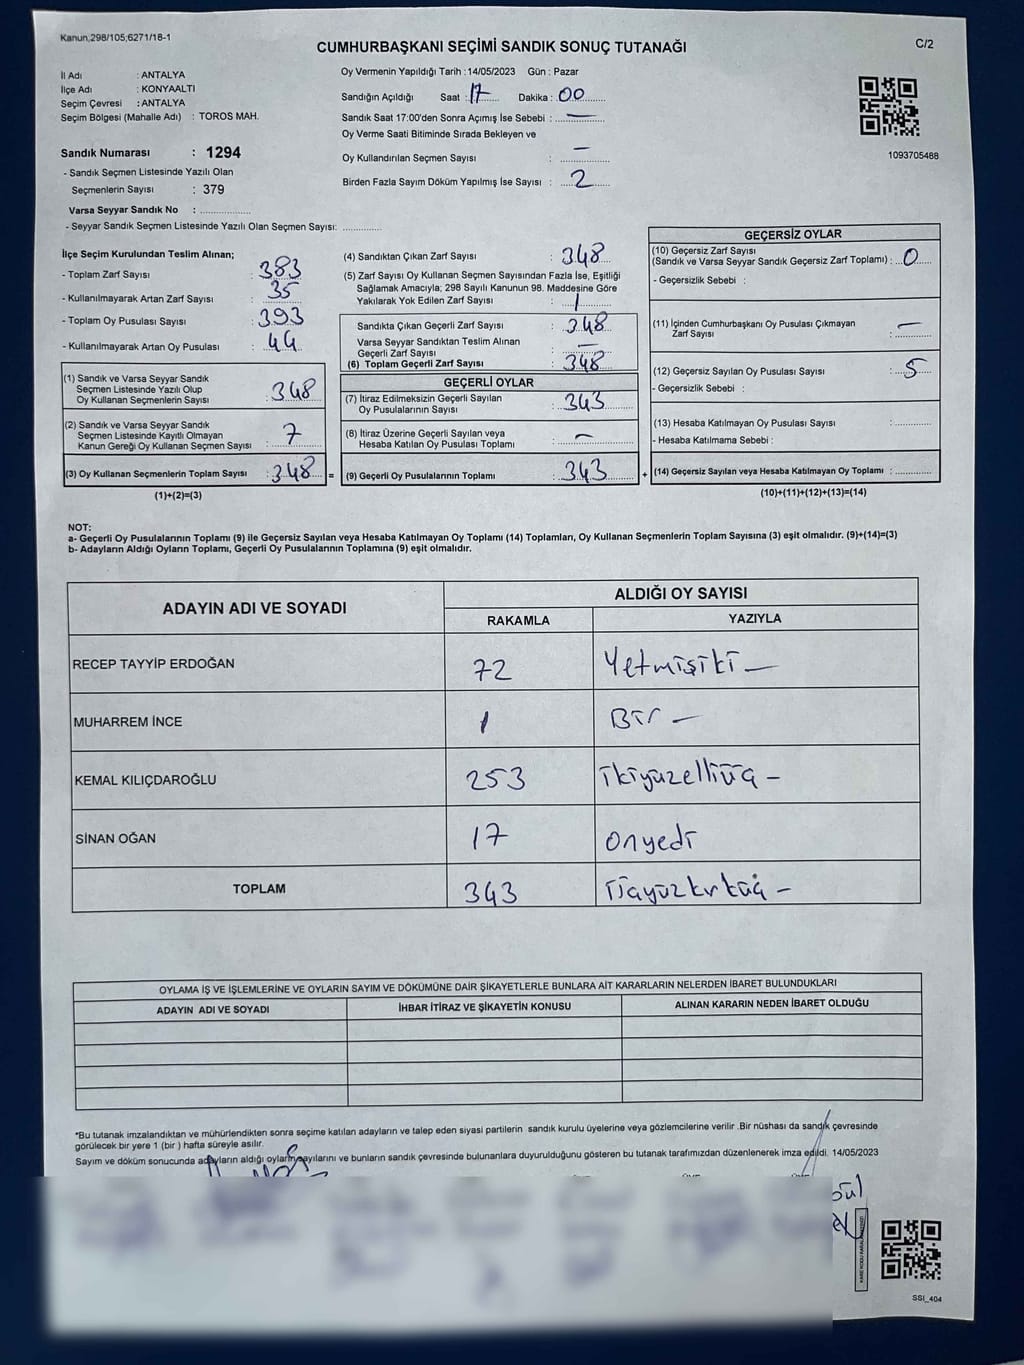 Kanun;298/105;6271/18-1
C/2
CUMHURBAŞKANI SEÇİMİ SANDIK SONUÇ TUTANAĞI
İl Adı : ANTALYA
İlçe Adı : KONYAALTI
Seçim Çevresi : ANTALYA
Seçim Bölgesi (Mahalle Adı) : TOROS MAH.
Sandık Numarası : 1294
- Sandık Seçmen Listesinde Yazılı Olan
Seçmenlerin Sayısı : 379
Varsa Seyyar Sandık No : ..................
- Seyyar Sandık Seçmen Listesinde Yazılı Olan Seçmen Sayısı: ..............
Oy Vermenin Yapıldığı Tarih : 14/05/2023 Gün : Pazar
Sandığın Açıldığı Saat : 17 Dakika : 00
Sandık Saat 17:00'den Sonra Açımış İse Sebebi : —
Oy Verme Saati Bitiminde Sırada Bekleyen ve
Oy Kullandırılan Seçmen Sayısı : —
Birden Fazla Sayım Döküm Yapılmış İse Sayısı : 2
1093705488
İlçe Seçim Kurulundan Teslim Alınan;
- Toplam Zarf Sayısı : 383
- Kullanılmayarak Artan Zarf Sayısı : 35
- Toplam Oy Pusulası Sayısı : 393
- Kullanılmayarak Artan Oy Pusulası : 44
(1) Sandık ve Varsa Seyyar Sandık
Seçmen Listesinde Yazılı Olup
Oy Kullanan Seçmenlerin Sayısı : 348
(2) Sandık ve Varsa Seyyar Sandık
Seçmen Listesinde Kayıtlı Olmayan
Kanun Gereği Oy Kullanan Seçmen Sayısı : 7
(3) Oy Kullanan Seçmenlerin Toplam Sayısı : 348 =
(1)+(2)=(3)
(4) Sandıktan Çıkan Zarf Sayısı : 348
(5) Zarf Sayısı Oy Kullanan Seçmen Sayısından Fazla İse, Eşitliği
Sağlamak Amacıyla; 298 Sayılı Kanunun 98. Maddesine Göre
Yakılarak Yok Edilen Zarf Sayısı : 1
Sandıkta Çıkan Geçerli Zarf Sayısı : 348
Varsa Seyyar Sandıktan Teslim Alınan
Geçerli Zarf Sayısı : —
(6) Toplam Geçerli Zarf Sayısı : 348
GEÇERLİ OYLAR
(7) İtiraz Edilmeksizin Geçerli Sayılan
Oy Pusulalarının Sayısı : 343
(8) İtiraz Üzerine Geçerli Sayılan veya
Hesaba Katılan Oy Pusulası Toplamı : —
(9) Geçerli Oy Pusulalarının Toplamı : 343 +
GEÇERSİZ OYLAR
(10) Geçersiz Zarf Sayısı
(Sandık ve Varsa Seyyar Sandık Geçersiz Zarf Toplamı) : 0
- Geçersizlik Sebebi :
(11) İçinden Cumhurbaşkanı Oy Pusulası Çıkmayan
Zarf Sayısı : —
(12) Geçersiz Sayılan Oy Pusulası Sayısı : 5
- Geçersizlik Sebebi :
(13) Hesaba Katılmayan Oy Pusulası Sayısı : ............
- Hesaba Katılmama Sebebi :
(14) Geçersiz Sayılan veya Hesaba Katılmayan Oy Toplamı : ............
(10)+(11)+(12)+(13)=(14)
NOT:
a- Geçerli Oy Pusulalarının Toplamı (9) ile Geçersiz Sayılan veya Hesaba Katılmayan Oy Toplamı (14) Toplamları, Oy Kullanan Seçmenlerin Toplam Sayısına (3) eşit olmalıdır. (9)+(14)=(3)
b- Adayların Aldığı Oyların Toplamı, Geçerli Oy Pusulalarının Toplamına (9) eşit olmalıdır.
ADAYIN ADI VE SOYADI ALDIĞI OY SAYISI
RAKAMLA YAZIYLA
RECEP TAYYİP ERDOĞAN 72 Yetmişiki —
MUHARREM İNCE 1 Bir —
KEMAL KILIÇDAROĞLU 253 ikiyüzelliüç —
SİNAN OĞAN 17 onyedi
TOPLAM 343 üçyüzkırküç —
OYLAMA İŞ VE İŞLEMLERİNE VE OYLARIN SAYIM VE DÖKÜMÜNE DAİR ŞİKAYETLERLE BUNLARA AİT KARARLARIN NELERDEN İBARET BULUNDUKLARI
ADAYIN ADI VE SOYADI İHBAR İTİRAZ VE ŞİKAYETİN KONUSU ALINAN KARARIN NEDEN İBARET OLDUĞU
*Bu tutanak imzalandıktan ve mühürlendikten sonra seçime katılan adayların ve talep eden siyasi partilerin sandık kurulu üyelerine veya gözlemcilerine verilir .Bir nüshası da sandık çevresinde
görülecek bir yere 1 (bir ) hafta süreyle asılır.
Sayım ve döküm sonucunda adayların aldığı oyların sayılarını ve bunların sandık çevresinde bulunanlara duyurulduğunu gösteren bu tutanak tarafımızdan düzenlenerek imza edildi. 14/05/2023
SSI_404